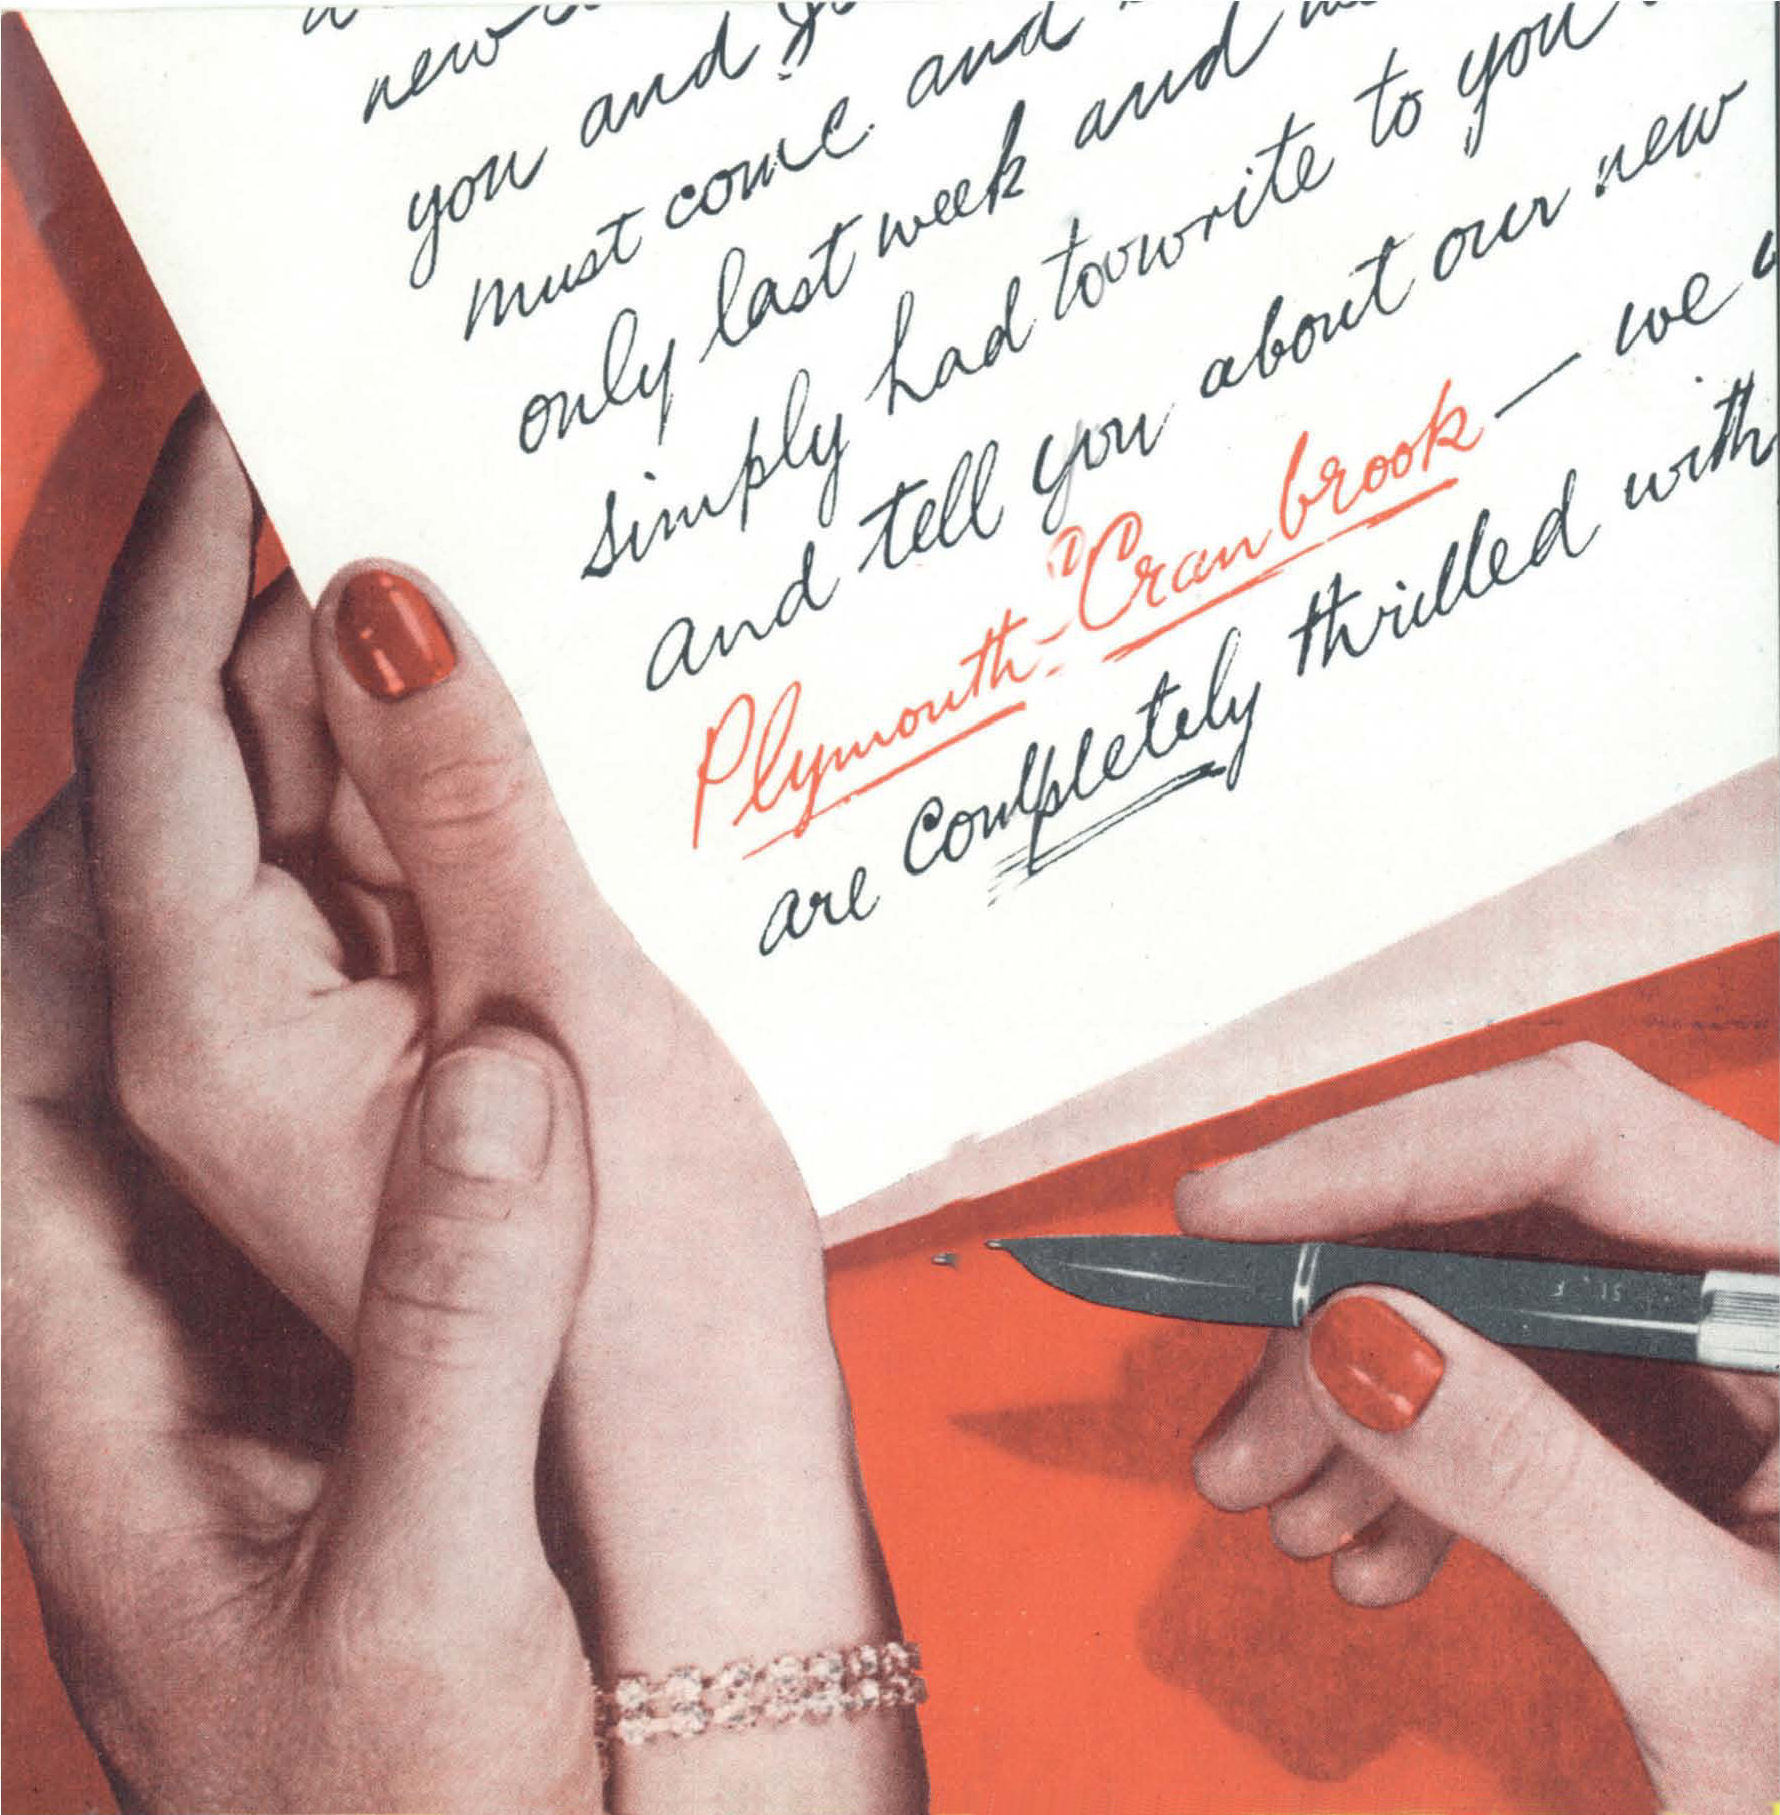 new
you and
must come and
only last week and
simply had to write to you
and tell you about our new
Plymouth-"Cranbrook — we
are completely thrilled with